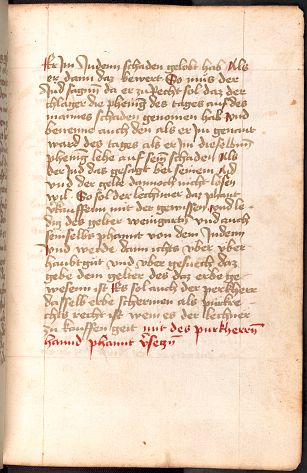 Er Im Juden schaden gelobt hab Als
er dann daz bewert So mus der
Jud sagen da er zu Recht sol daz der
chlager die phening des tages auf des
mannes schaden genomen hab Und
benenne auch den als er Im genant
ward des tages als er Im dieselben
phening lehe auf sein schaden Als
der Jud das gesagt bei seinem
und der gelter dannoch nicht losen
wil So sol der lechner daz phant
verkauffen mit der gewissen und le
dig des gelter weingarten und auch
sein selbs phannt von dem Juden
Und werde dann ichts uber uber
haubtgut und uber gesuech daz
gebe dem gelter des daz erbe ge
wesenn ist Es sol auch der perkherr
dasselb erbe schermen als purkre
chts recht ist wem es der lechner
zu kauffen geit mit des purkherrn
hannd phannt